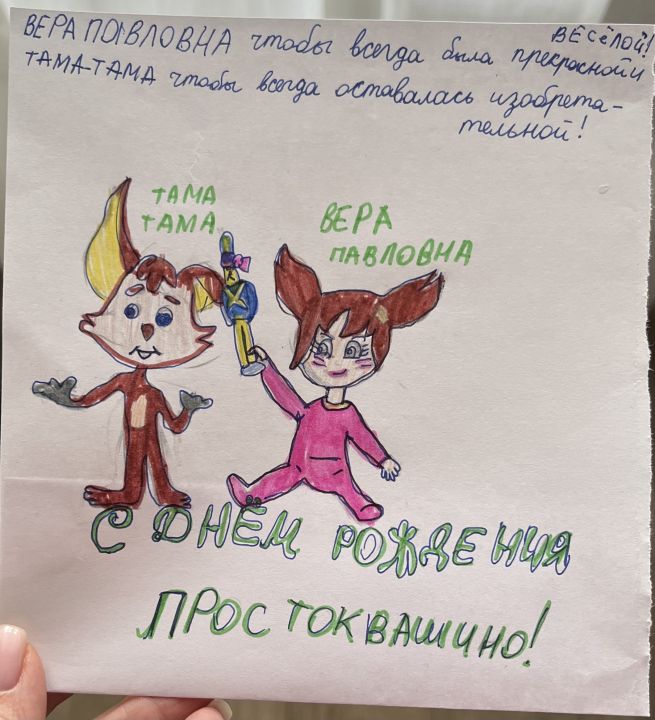 ВЕРА ПАВЛОВНА чтобы всегда была прекрасной и
ВЕСёЛОЙ!
ТАМА-ТАМА чтобы всегда оставалась изобрета-
тельной!
ТАМА
ТАМА
ВЕРА
ПАВЛОВНА
С ДНЁМ РОЖДЕНИЯ
ПРОСТОКВАШИНО!